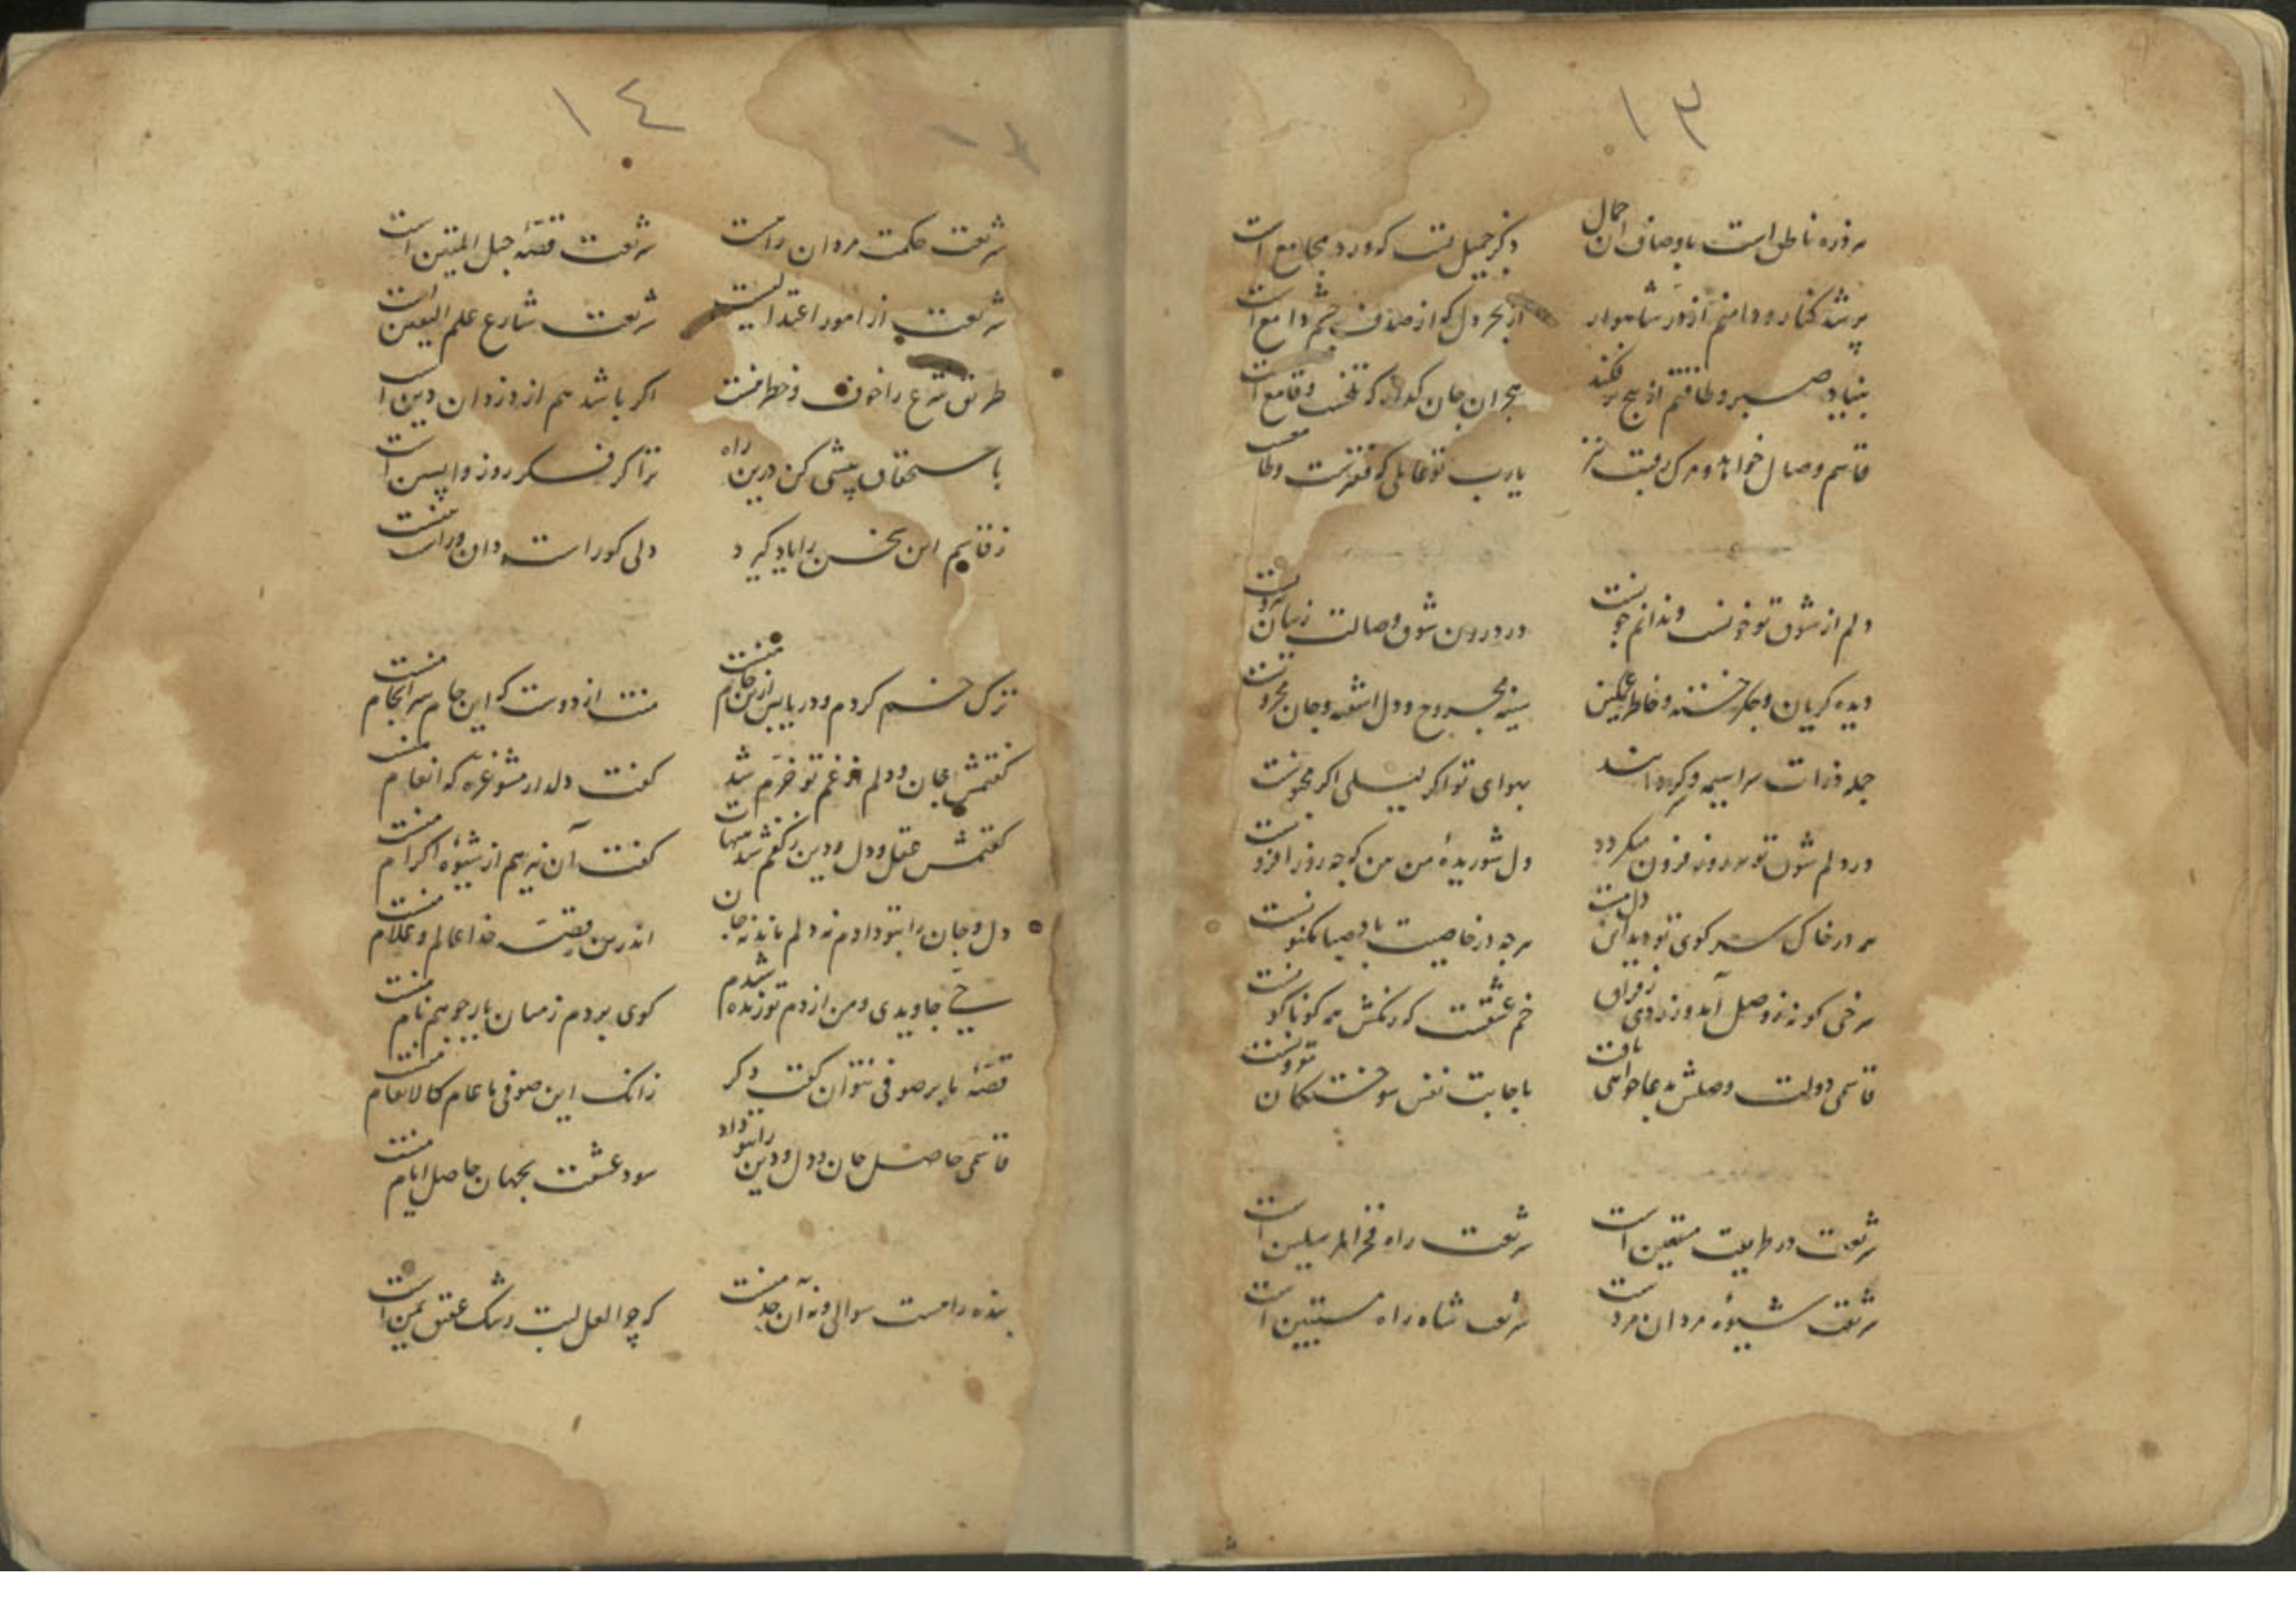 ١٣
هر ذره ناطق است باوصاف آن جمال ذکر جمیل تست که ورد مجامع است
پر شد کنار و دامنم از در شاهوار از بحر دل که از صدف چشم دامع است
بنیاد صبر و طاقتم از بیخ برفکند هجران جان کداز که تلخست و قامع است
قاسم وصال خواهد و هرکز نیافت یارب تو
دلم از شوق تو خونست و ندانم چونست در درون شوق وصالت ز بیان بیرونست
دیده کریان و جکر خسته و خاطر غمکین سینه مجروح و دل آشفته و جان محزونست
جمله ذرات سراسیمه و کردانند بهوای تو اکر لیلی اکر مجنونست
در دلم شوق تو هر روز فزون میکردد دل شوریدهٔ من بین که چه روز افزونست
هر در خاک سر کوی تو دیدا هرچه در خاصیت باد صبا مکنونست
سرخی کونه ز وصل آمد و زردی ز فراق خم عشقست که رنکش همه کوناکونست
قاسمی دولت وصلش بدعا خواهی یافت باجابت نفس سوختکان مقرونست
شریعت در طریقت مستعین است شریعت راه فخر المرسلین است
شریعت شیوهٔ مردان مرد است شریعت شاه راه مستبین است
١٤
شریعت حکمت مردان راهست شریعت قصهٔ حبل المتین است
شریعت از امور اعتدالیست شریعت شارع علم الیقین است
طریق شرع را خوف و خطر نیست اکر باشد هم از دزدان دین است
باستحقاق پیشی کن درین راه ترا کر فکر روز واپسین است
ز قاسم این سخن را یاد کیرد دلی کو راست دان و راست
ترک خشم کردم و دریا پس ازین جام منست منت از دوست که این جام سرانجام منست
کفتمش جان و دلم از غم تو خرم شد کفت دلدار مشو غره که انعام منست
کفتمش عقل و دل و دین ز کفم شد هیهات کفت آن نیز هم از شیوهٔ اکرام منست
دل و جان را بتو دادم نه دلم ماند نه جان اندرین قصه خدا عالم و علام منست
حی جاویدی و من از دم تو زنده شدم کوی بردم ز میان یار چو هم نام منست
قصهٔ ما بر صوفی نتوان کفت دکر زانک این صوفی ما عام کالانعام منست
قاسمی حاصل جان و دل و دین را بتو داد سود عشقت بجهان حاصل ایام منست
بنده را هست سوالی و نه آن حد منست کر چو لعل لبت رشک عقیق یمن است